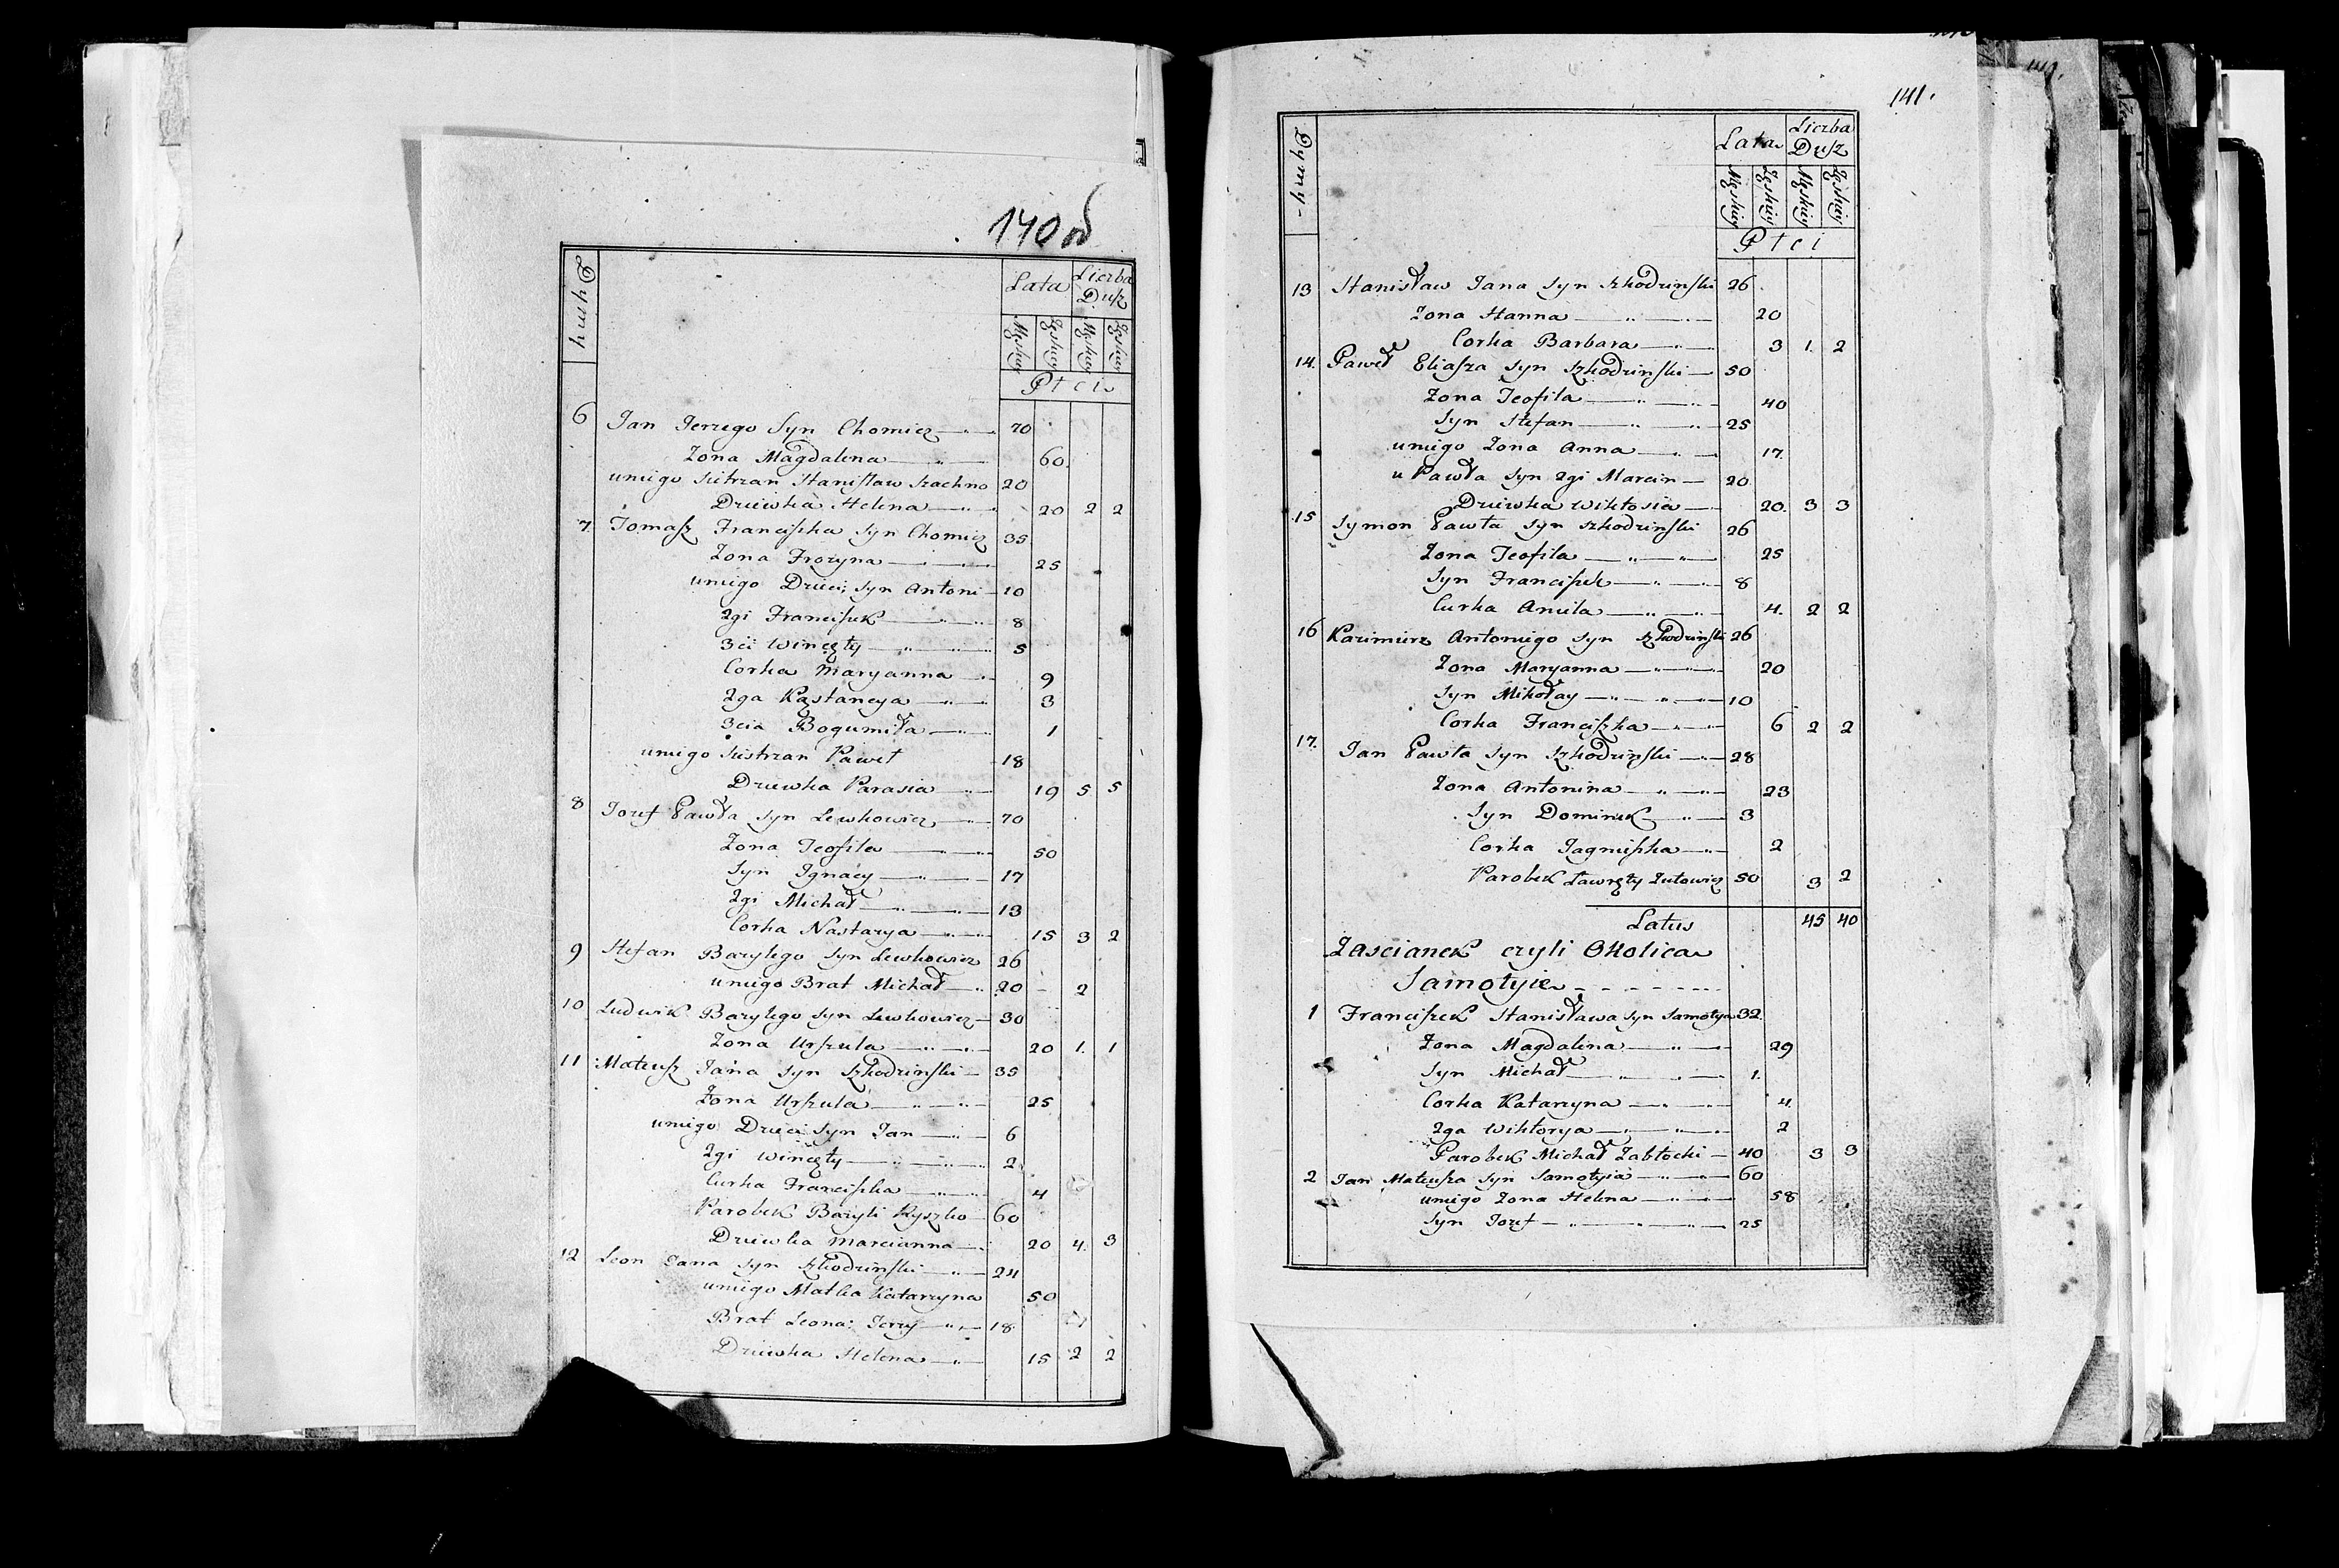 140 об
Dymy
Lata
Liczba Dusz
Męskiey
Żęskiey
Męskiey
Żęskiey
Płci
6 Jan Jerzego Syn Chomicz 70
Zona Magdalena 60
uniego Siestrzan Stanisław Szachno 20
Dziewka Helena 20 2 2
7 Tomasz Franciszka Syn Chomicz 35
Zona Frozyna 25
uniego Dzieci, Syn Antoni 10
2gi Franciszek 8
3ci Wincęty 5
Corka Maryanna 9
2ga Kąstancya 3
3cia Bogumiła 1
uniego Siestrzan Paweł 18
Dziewka Parasia 19 5 5
8 Jozef Pawła Syn Lewkowicz 70
Zona Teofila 50
Syn Jgnacy 17
2gi Michał 13
Corka Nastazya 15 3 2
9 Stefan Bazylego Syn Lewkowicz 26
uniego Brat Michał 20 2
10 Ludwik Bazylego Syn Lewkowicz 30
Zona Urszula 20 1. 1
11 Mateusz Jana Syn Szkodzinski 35
Zona Urszula 25
uniego Dzieci Syn Jan 6
2gi Wincęty 2
Curka Franciszka 4
Parobek Bazyli Kyszko 60
Dziewka Marcianna 20 4. 3
12 Leon Jana Syn Szkodzinski 24
uniego Matka Katarzyna 50
Brat Leona: Jerzy 18
Dziewka Helena 15 2 2
141.
Dymy
Lata
Liczba Dusz
Męskiey
Żęskiey
Męskiey
Żęskiey
Płci
13 Stanisław Jana Syn Szkodzinski 26
Zona Hanna 20
Corka Barbara 3 1. 2
14. Paweł Eliasza Syn Szkodzinski 50
Zona Teofila 40
Syn Stefan 25
uniego Zona Anna 17.
u Pawła Syn 2gi Marcin 20
Dziewka Wiktosia 20. 3 3
15 Symon Pawła Syn Szkodzinski 26
Zona Teofila 25
Syn Franciszek 8
Curka Aniela 4. 2 2
16 Kazimierz Antoniego Syn Szkodzinski 26
Zona Maryanna 20
Syn Mikołay 10
Corka Franciszka 6 2 2
17. Jan Pawła Syn Szkodzinski 28
Zona Antonina 23
Syn Dominik 3
Corka Jagnieszka 2
Parobek Ławręty Zutowicz 50 3 2
Latus 45 40
Zascianek czyli Okolica
Samotyie
1 Franciszek Stanisława Syn Samotyia 32.
Zona Magdalena 29
Syn Michał 1.
Corka Katarzyna 4.
2ga Wiktorya 2
Parobek Michał Zabłocki 40 3 3
2 Jan Mateusza Syn Samotyia 60
uniego Zona Helena 58
Syn Jozef 25